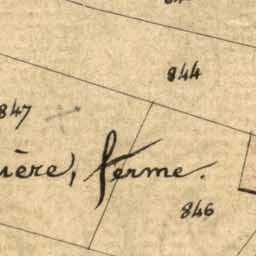 844
847
ière, ferme.
846